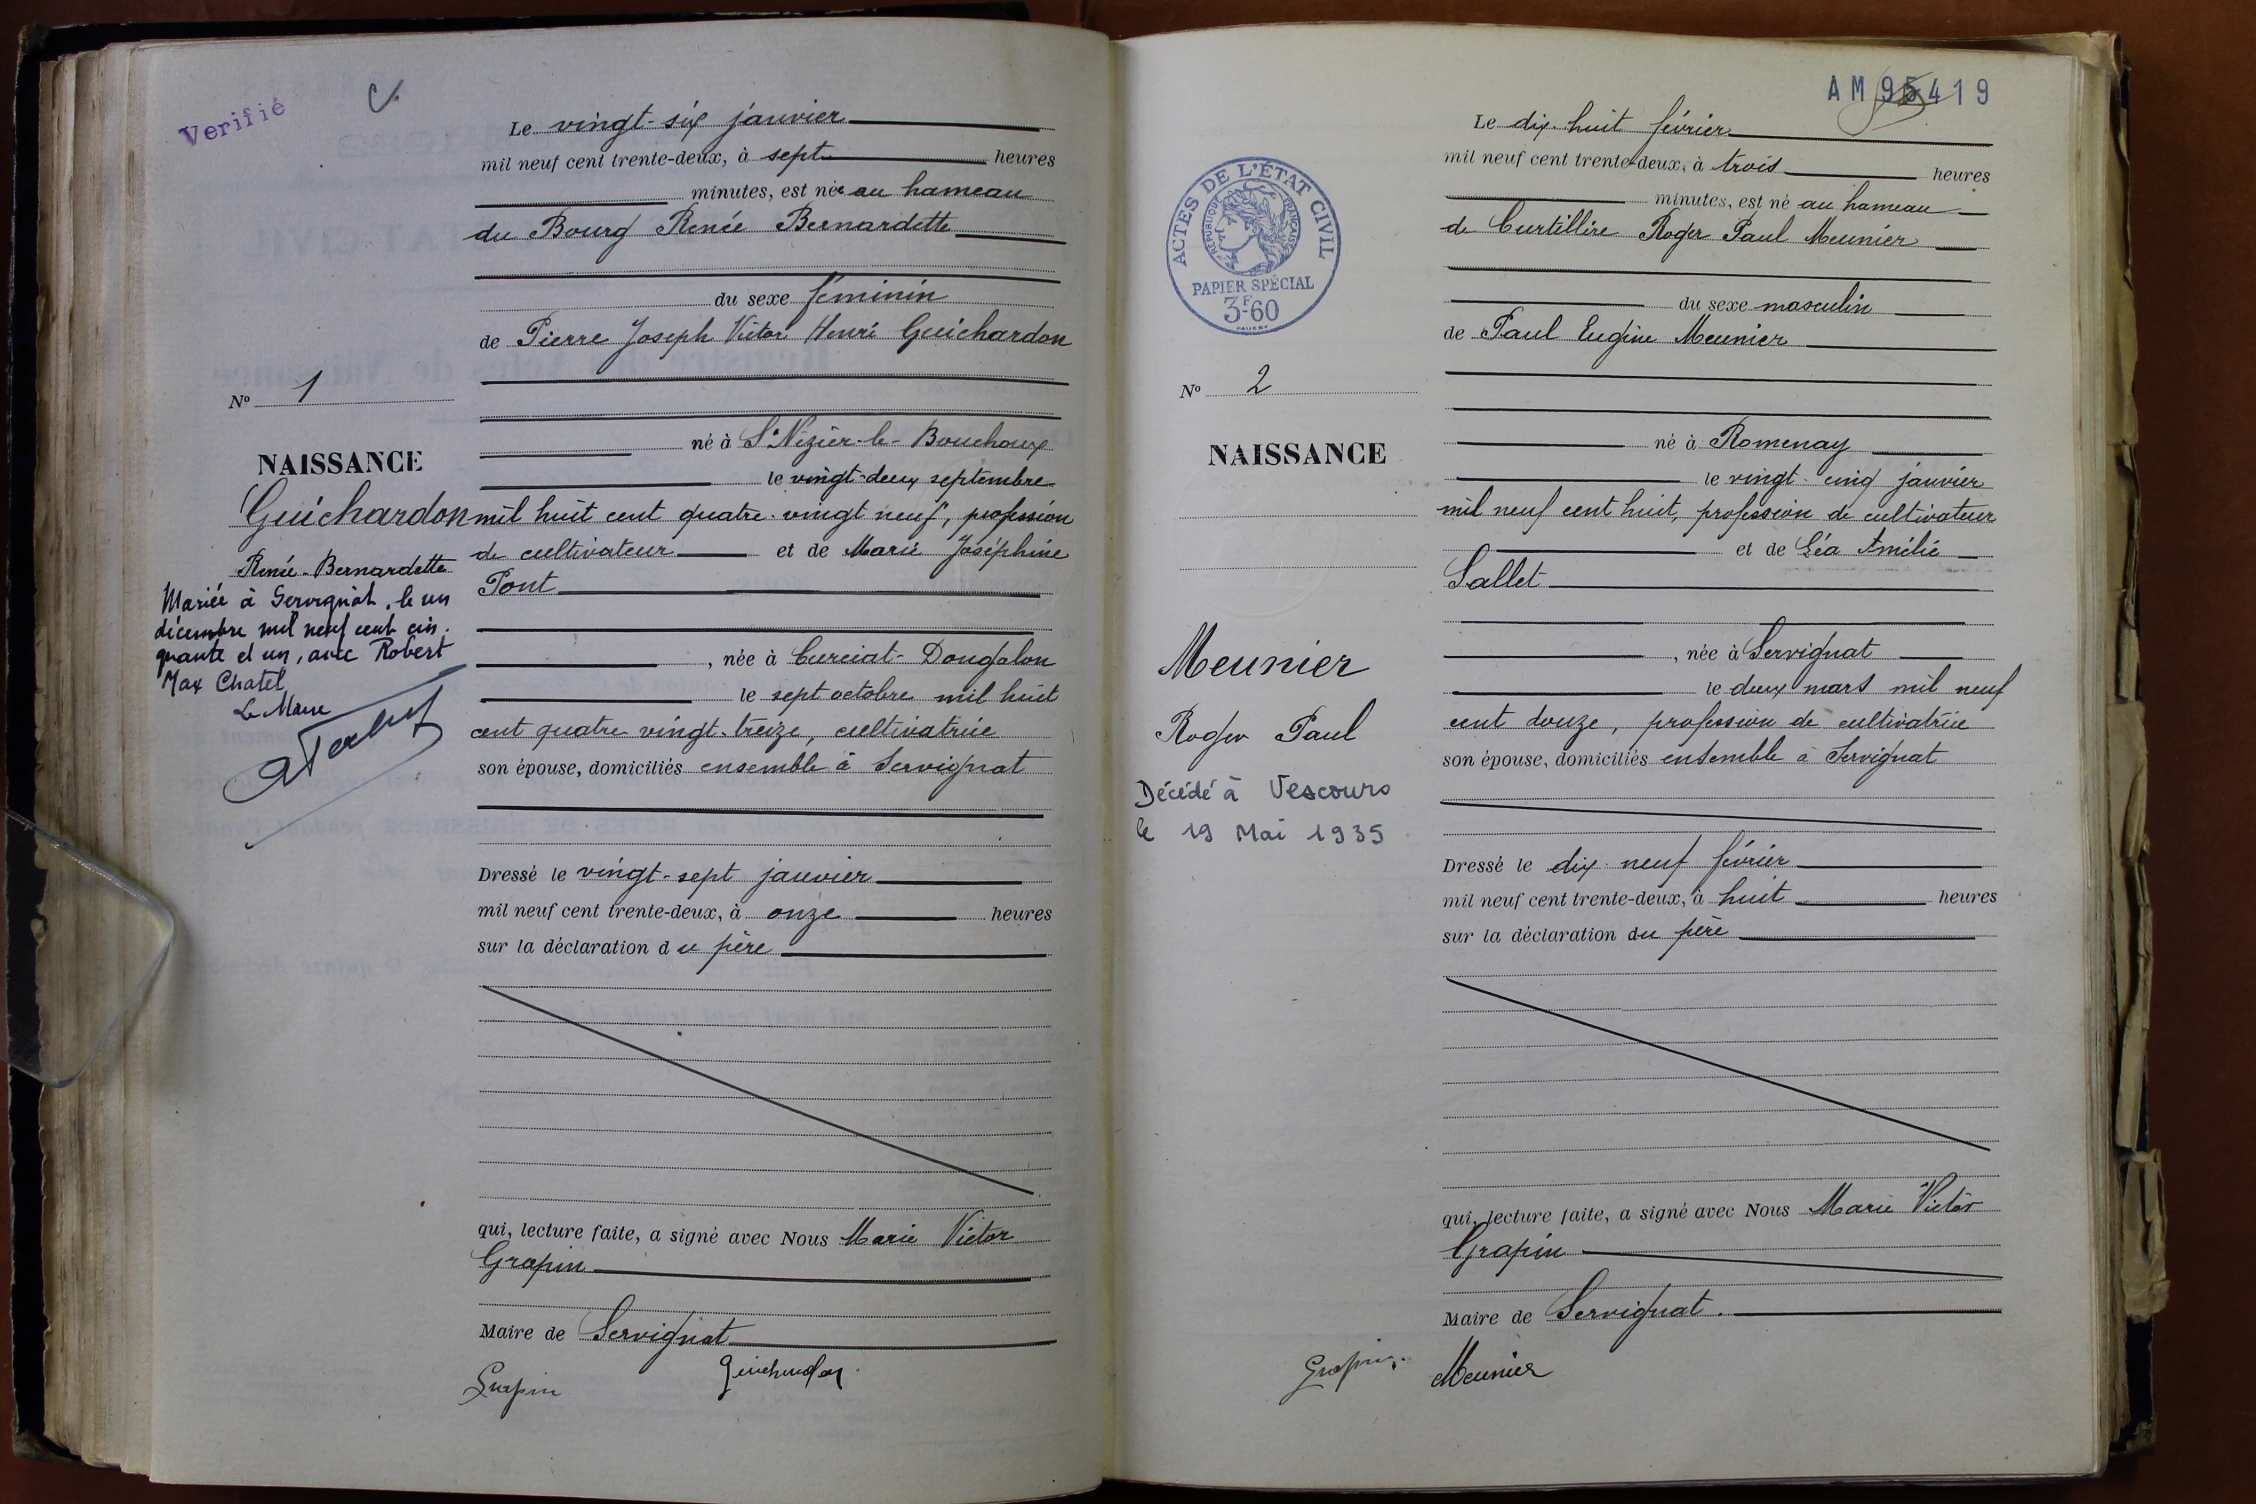 Verifié
Le vingt-six janvier
mil neuf cent trente-deux, à sept heures
minutes, est née au hameau
du Bourg Renée Bernardette
du sexe féminin
de Pierre Joseph Victor Henri Guichardon
né à St Nizier-le-Bouchoux
le vingt-deux septembre
mil huit cent quatre-vingt neuf, profession
de cultivateur et de Marie Joséphine
Pont
, née à Curciat-Dongalon
le sept octobre mil huit
cent quatre vingt-treize, cultivatrice
son épouse, domiciliés ensemble à Servignat
Dressé le vingt-sept janvier
mil neuf cent trente-deux, à onze heures
sur la déclaration du père
qui, lecture faite, a signé avec Nous Marie Victor
Grapin
Maire de Servignat
Grapin Guichardon
No 1
NAISSANCE
Guichardon
Renée-Bernardette
Mariée à Servignat, le un
décembre mil neuf cent cin-
quante et un, avec Robert
Max Chatel
Le Maire
AM 95419
Le dix-huit février
mil neuf cent trente-deux, à trois heures
minutes, est né au hameau
de Curtillère Roger Paul Meunier
du sexe masculin
de Paul Eugène Meunier
né à Romenay
le vingt-cinq janvier
mil neuf cent huit, profession de cultivateur
et de Léa Amélie
Sallet
, née à Servignat
le deux mars mil neuf
cent douze, profession de cultivatrice
son épouse, domiciliés ensemble à Servignat
Dressé le dix-neuf février
mil neuf cent trente-deux, à huit heures
sur la déclaration du père
qui, lecture faite, a signé avec Nous Marie Victor
Grapin
Maire de Servignat.
Grapin. Meunier
ACTES DE L'ÉTAT CIVIL
RÉPUBLIQUE FRANÇAISE
PAPIER SPÉCIAL
3F60
No 2
NAISSANCE
Meunier
Roger Paul
Décédé à Vescours
le 19 Mai 1935